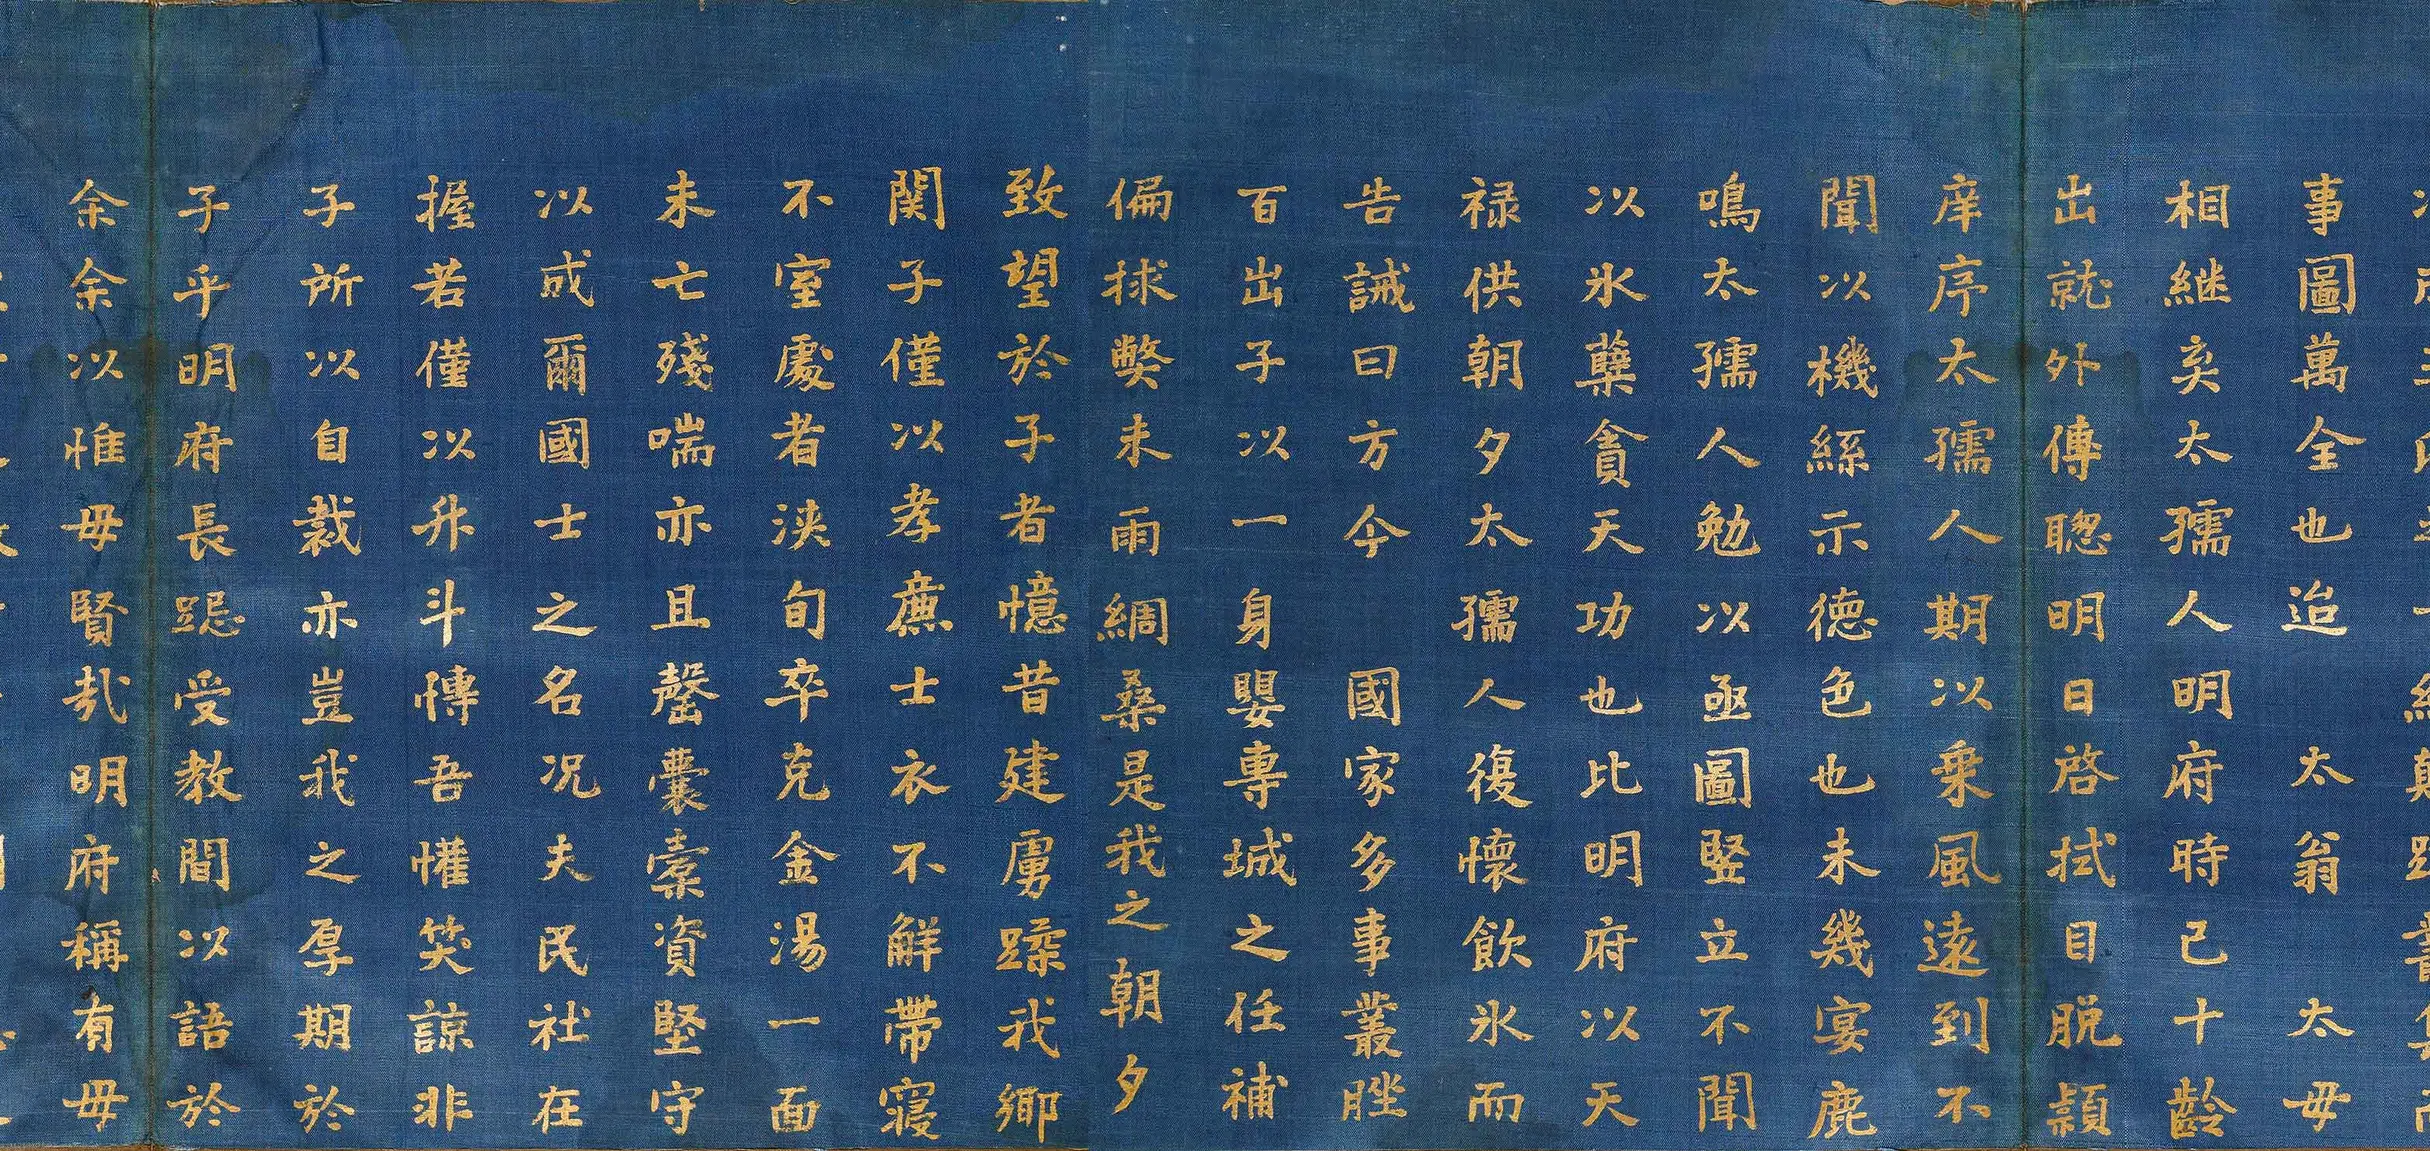 事圖萬全也迨太翁太毋
相継矣太孺人明府時已十齡
出就外傳聰明日啓拭目脱穎
庠序太孺人期以乗風遠到不
聞以機絲示德色也未幾宴鹿
鳴太孺人勉以亟圖竪立不聞
以氷蘖貪天功也比明府以天
禄供朝夕太孺人復懷飲氷而
告誡曰方今國家多事叢脞
百出子以一身嬰専城之任補
偏捄弊未雨綢桑是我之朝夕
致望於子者憶昔建虜蹂我鄉
関子僅以孝廉士衣不觧帶寢
不室處者浹旬卒克金湯一面
未亡殘喘亦且罄囊槖資堅守
以成爾國士之名况夫民社在
握若僅以升斗慱吾懽笑諒非
子所以自裁亦豈我之厚期於
子乎明府長跽受教間以語於
余余以惟毋賢㢤明府稱有毋